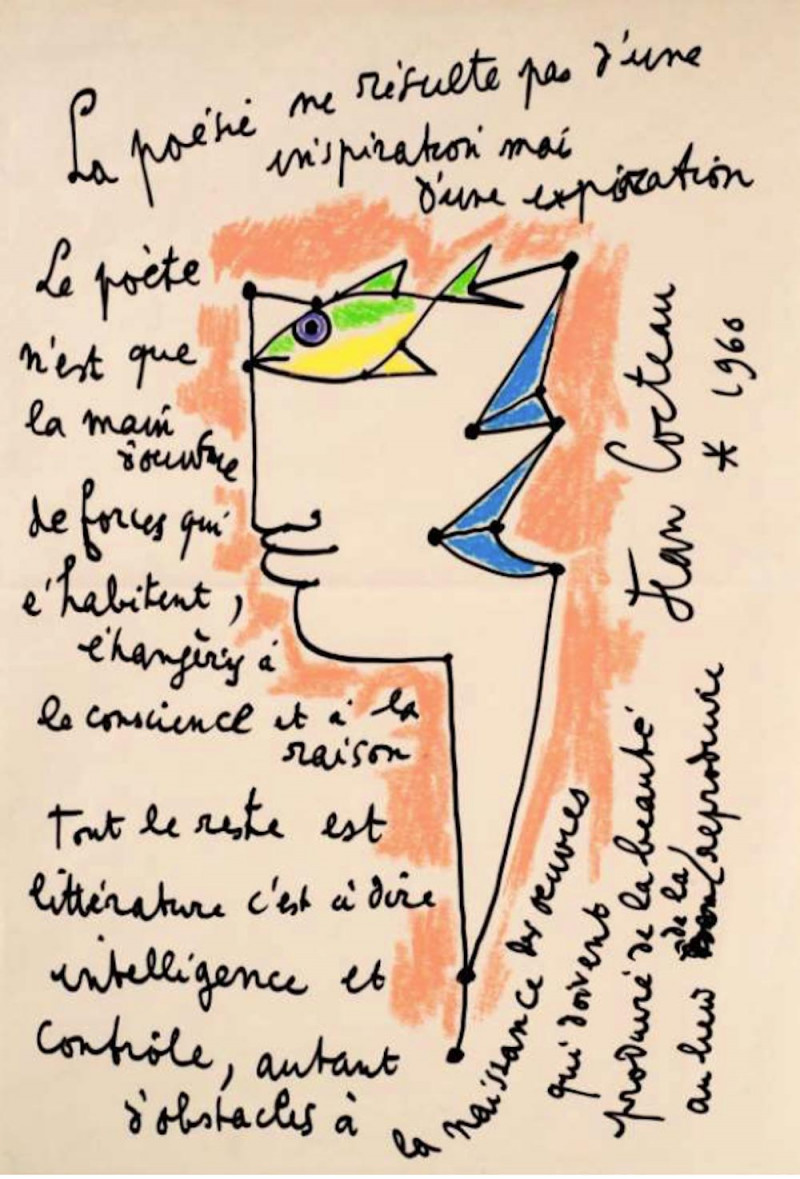 La poésie ne résulte pas d'une
inspiration mais
d'une expiration
Le poète
n'est que
la main
ouvrière
de forces qui
l'habitent,
étrangères à
la conscience et à la
raison
Tout le reste est
littérature c'est à dire
intelligence et
contrôle, autant
d'obstacles à
la naissance des œuvres
qui doivent
produire de la beauté
au lieu de la reproduire
Jean Cocteau
* 1960